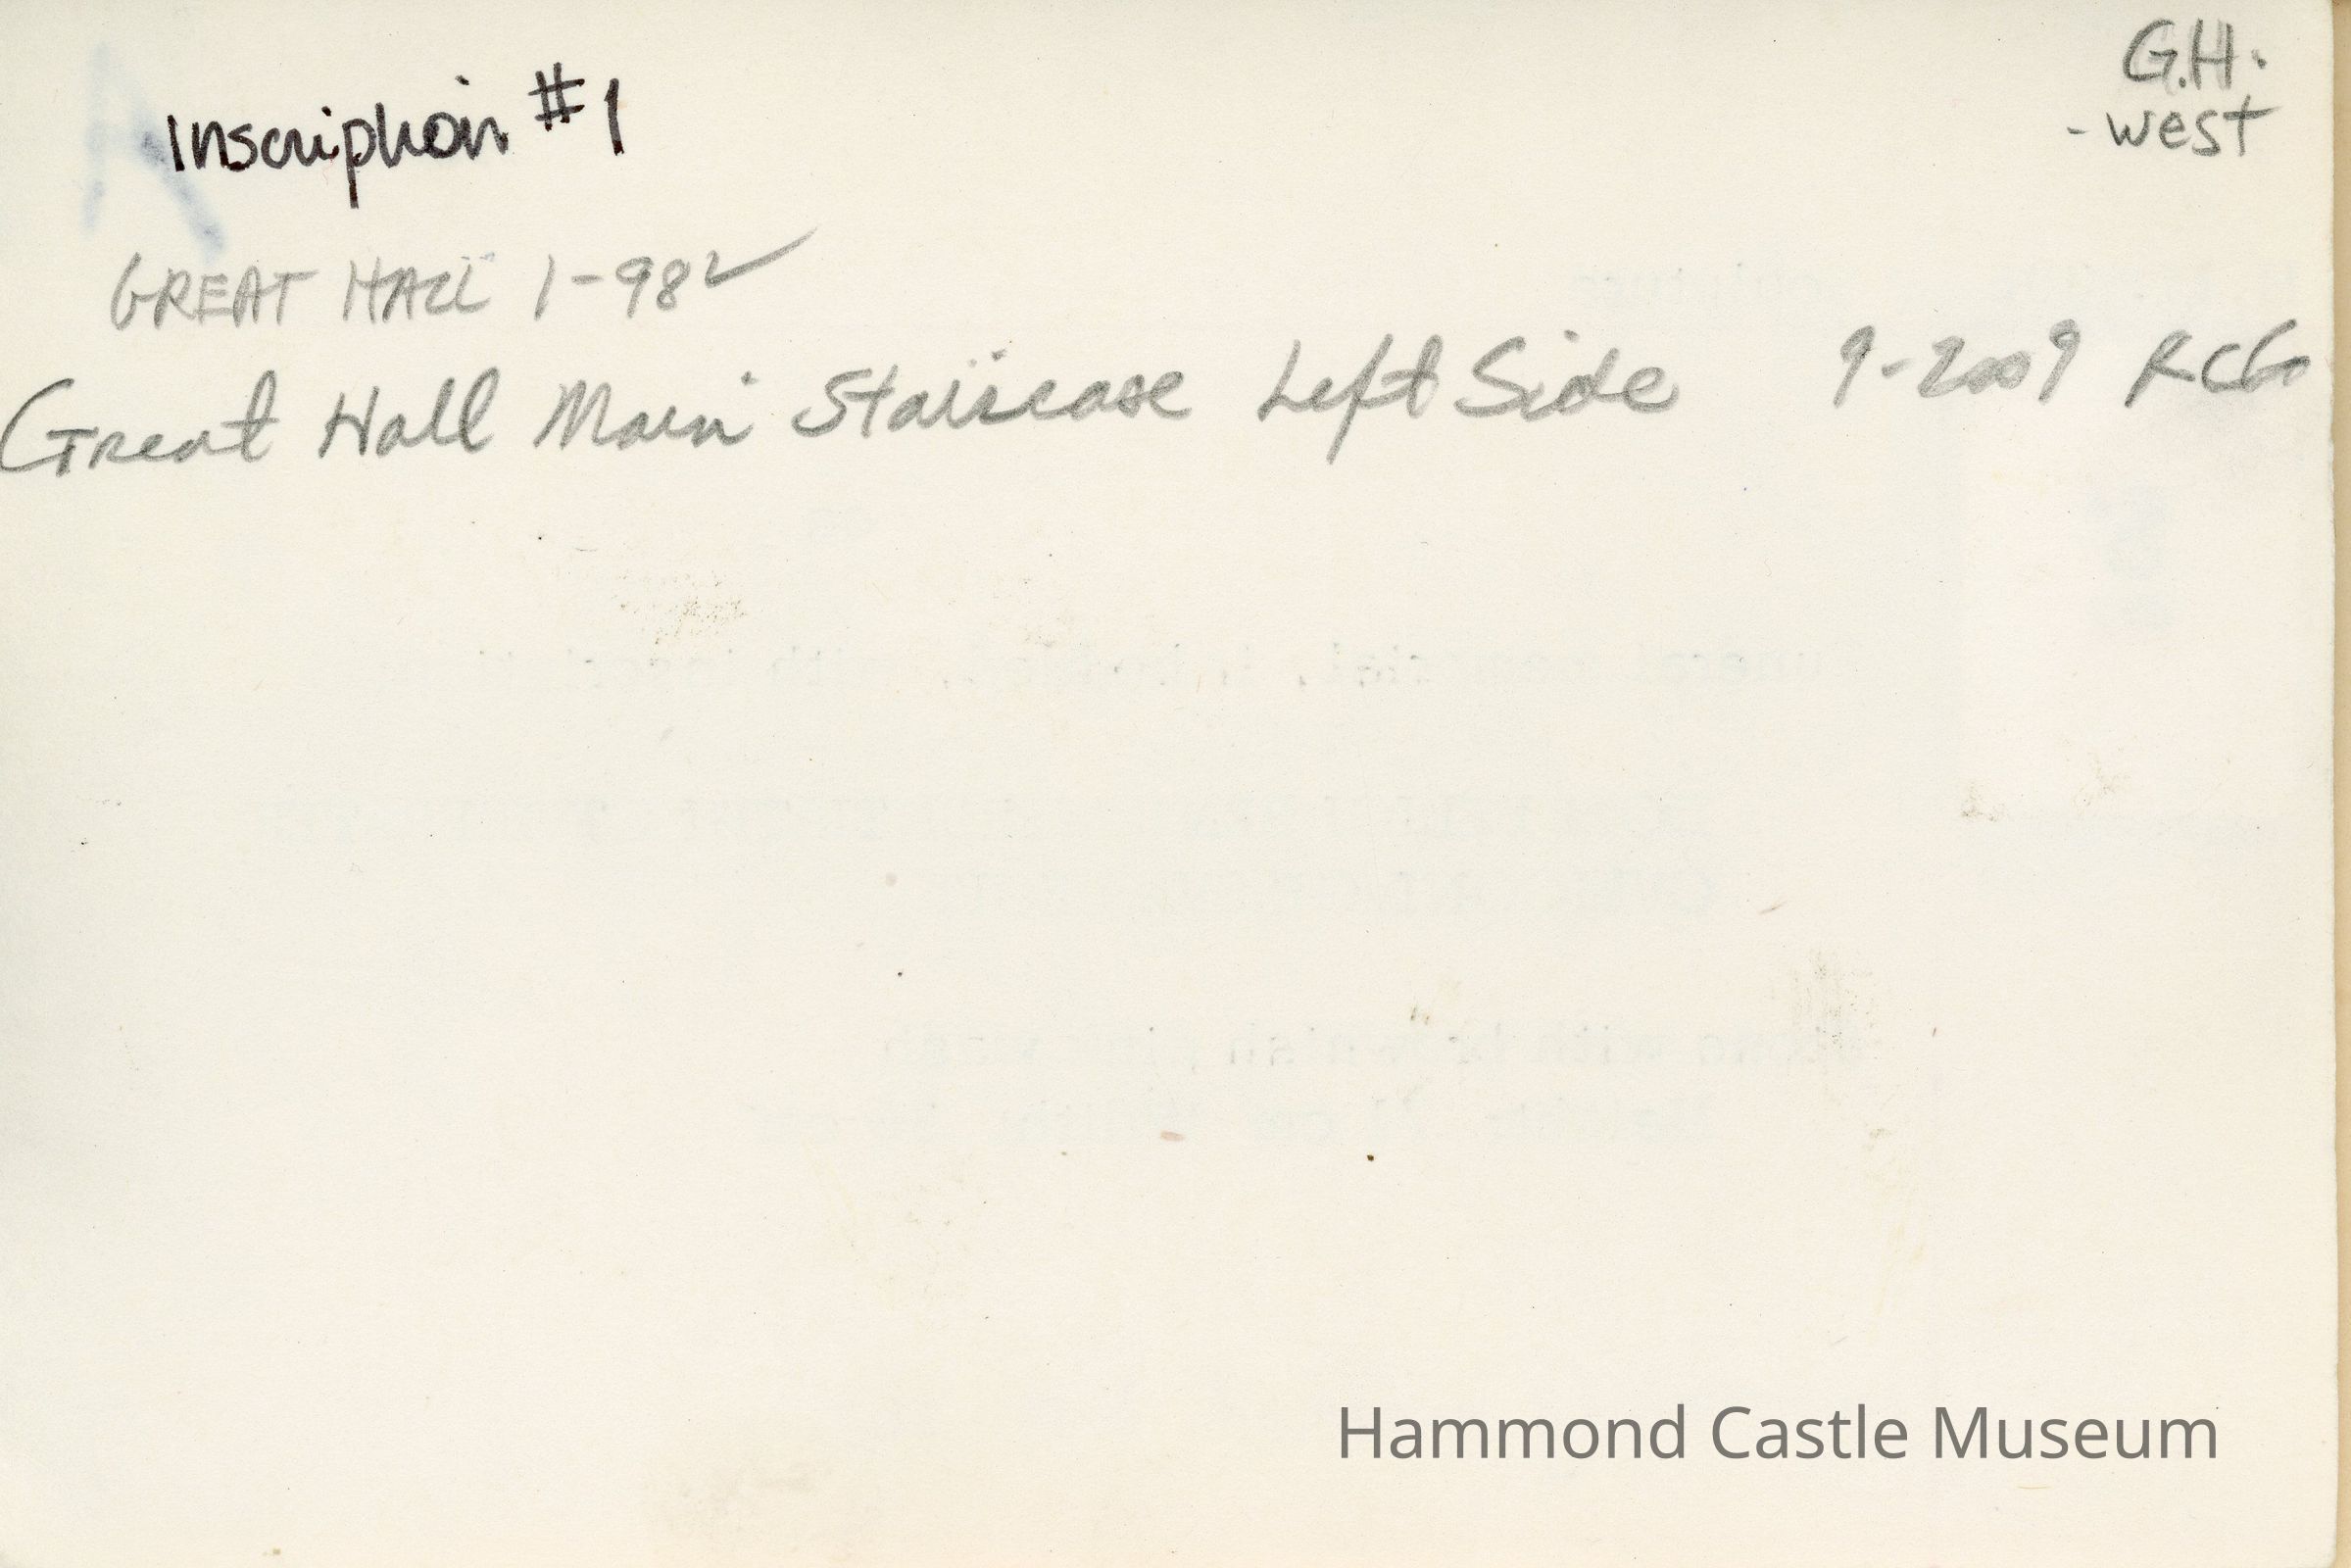 G.H.
-west
Inscription #1
GREAT HALL 1-98 ✓
Great Hall Main Staircase Left Side 9-2009 RCG
Hammond Castle Museum